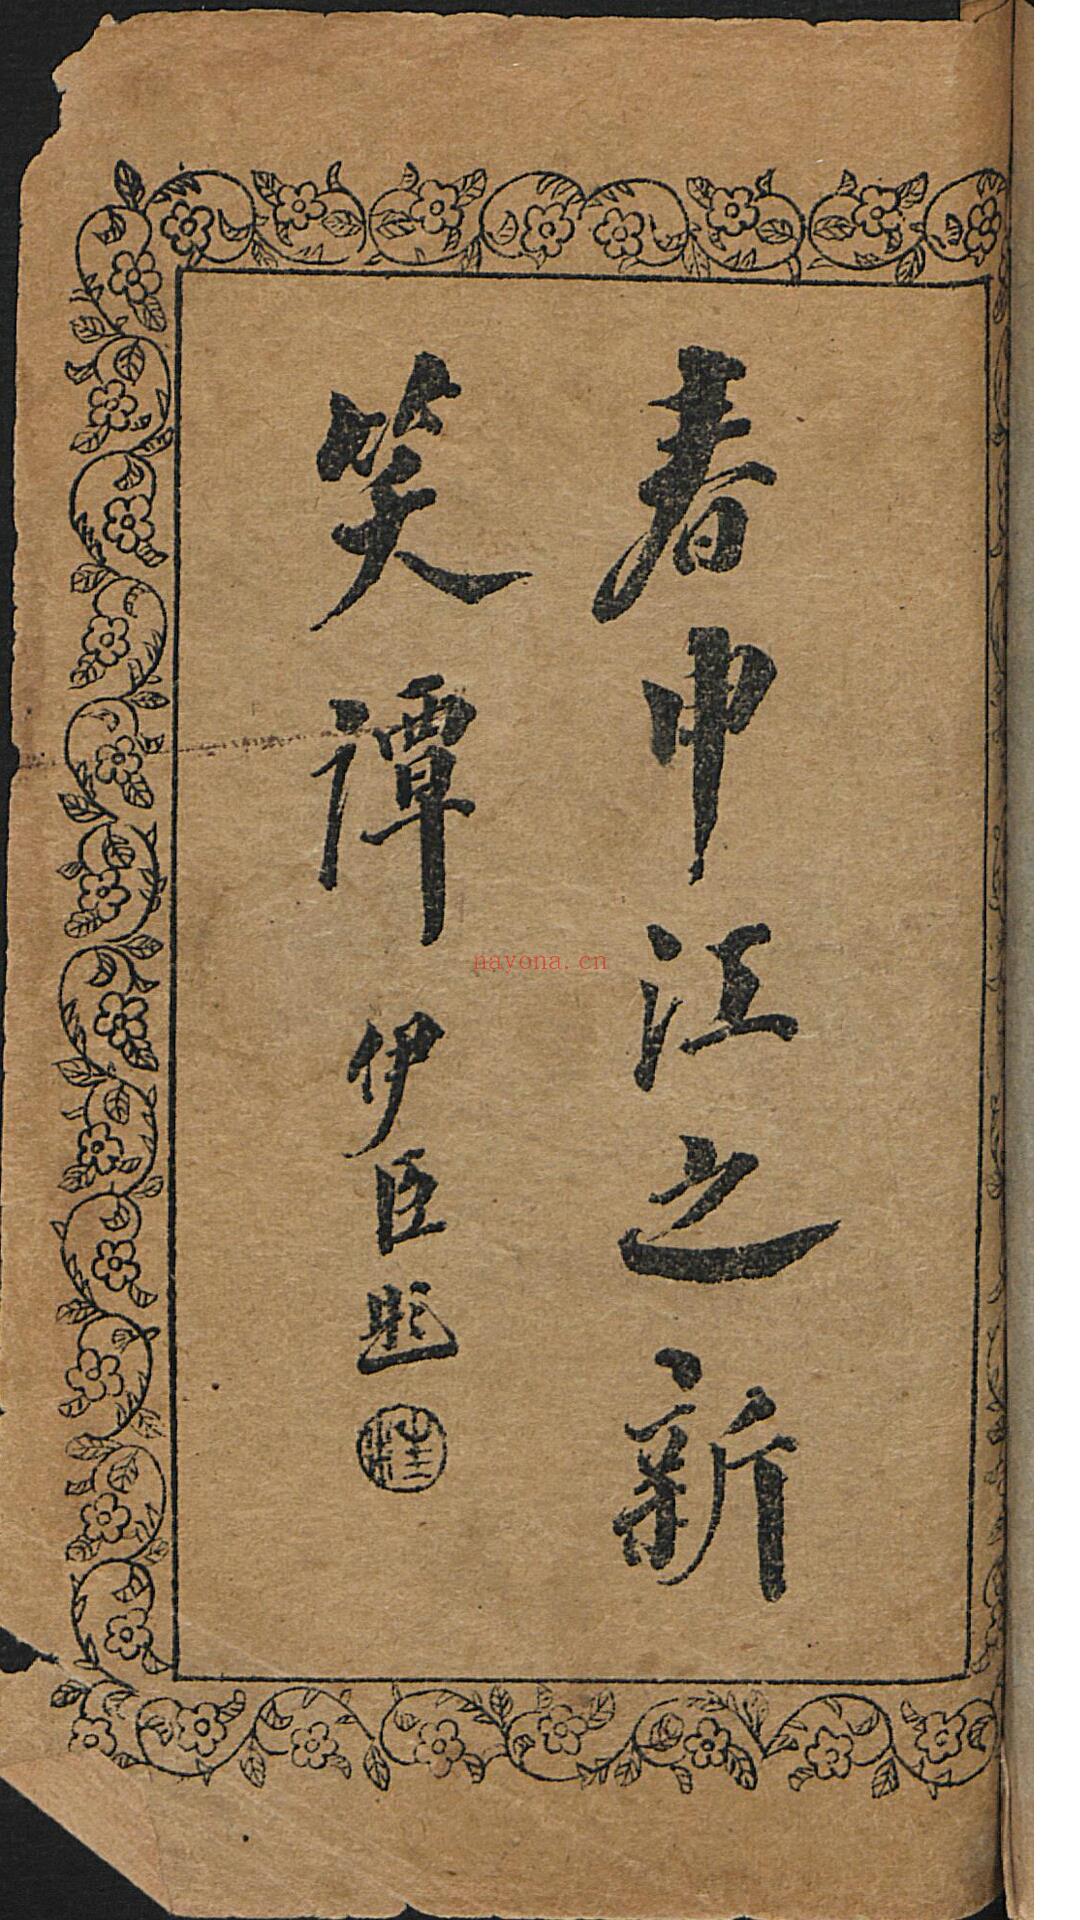 春申江之新
笑譚
伊臣題
nayona.cn